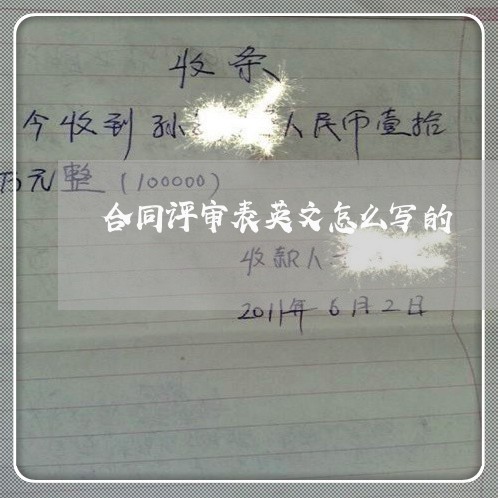 收条
今收到孙人民币壹拾
万元整(100000)
合同评审表英文怎么写的
收款人
2011年6月2日